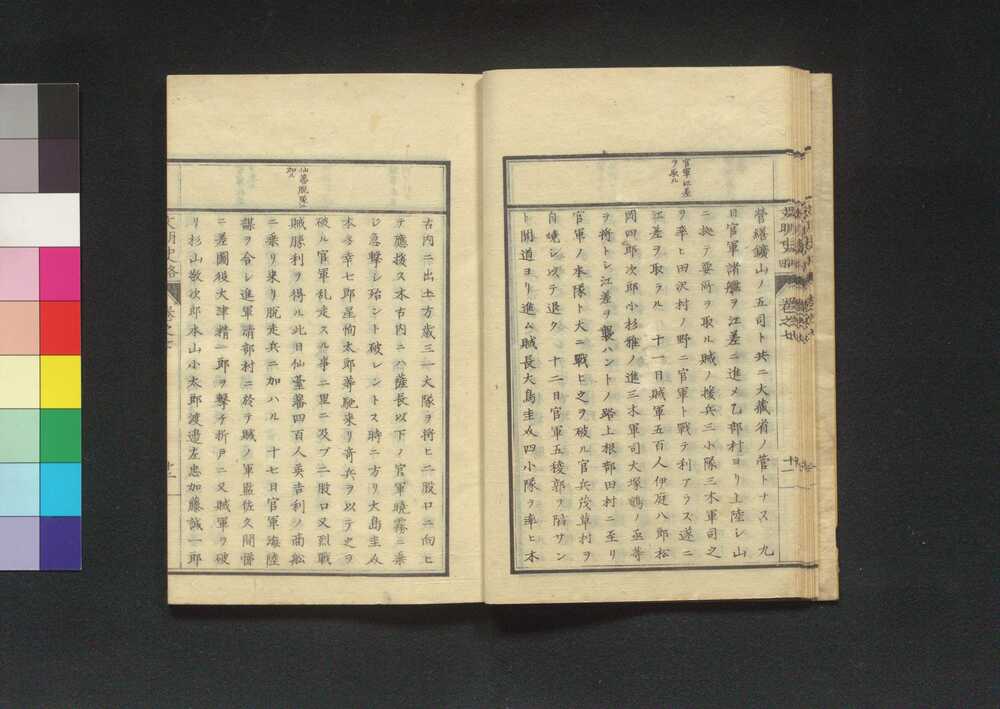 官軍江差
ヲ取ル
營繕鑛山ノ五司ト共ニ大藏省ノ管トナス　九
日官軍諸艦ヲ江差ニ進メ乙部村ヨリ上陸シ山
ニ拠テ要所ヲ取ル賊ノ援兵三小隊三木軍司之
ヲ率ヒ田沢村ノ野ニ官軍ト戦テ利アラス遂ニ
江差ヲ取ラル　十一日賊軍五百人伊庭八郎松
岡四郎次郎小杉雅ノ進三木軍司大塚鶴ノ丞等
ヲ将トシ江差ヲ襲ハントノ路上根部田村ニ至リ
官軍ノ本隊ト大ニ戰ヒ之ヲ破ル官兵茂草村ヲ
自燒シ以テ退ク　十二日官軍五稜郭ヲ陷サン
ト間道ヨリ進ム賊長大鳥圭介四小隊ヲ率ヒ木
卷之七
十一
仙臺脱隊
加ル
古内ニ出土方歳三一大隊ヲ将ヒ二股口ニ向ヒ
テ應援ス木古内ニハ薩長以下ノ官軍曉霧ニ乗
シ急撃シ殆ント破レントス時ニ方リ大鳥圭介
本多幸七郎星恂太郎等馳来リ奇兵ヲ以テ之ヲ
破ル官軍乱走スル事ニ里ニ及ブ二股口又烈戰
賊勝利ヲ得ル此日仙臺藩四百人英吉利ノ商舩
ニ乗リ来リ脱走兵ニ加ハル　十七日官軍海陸
謀ヲ合シ進軍請部村ニ於テ賊ノ軍監佐久間悌
ニ差圖役大津精一郎ヲ撃チ折戸ニ又賊軍ヲ破
リ杉山敬次郎水山小太郎渡邉左忠加藤誠一郎
文明史略
卷之七